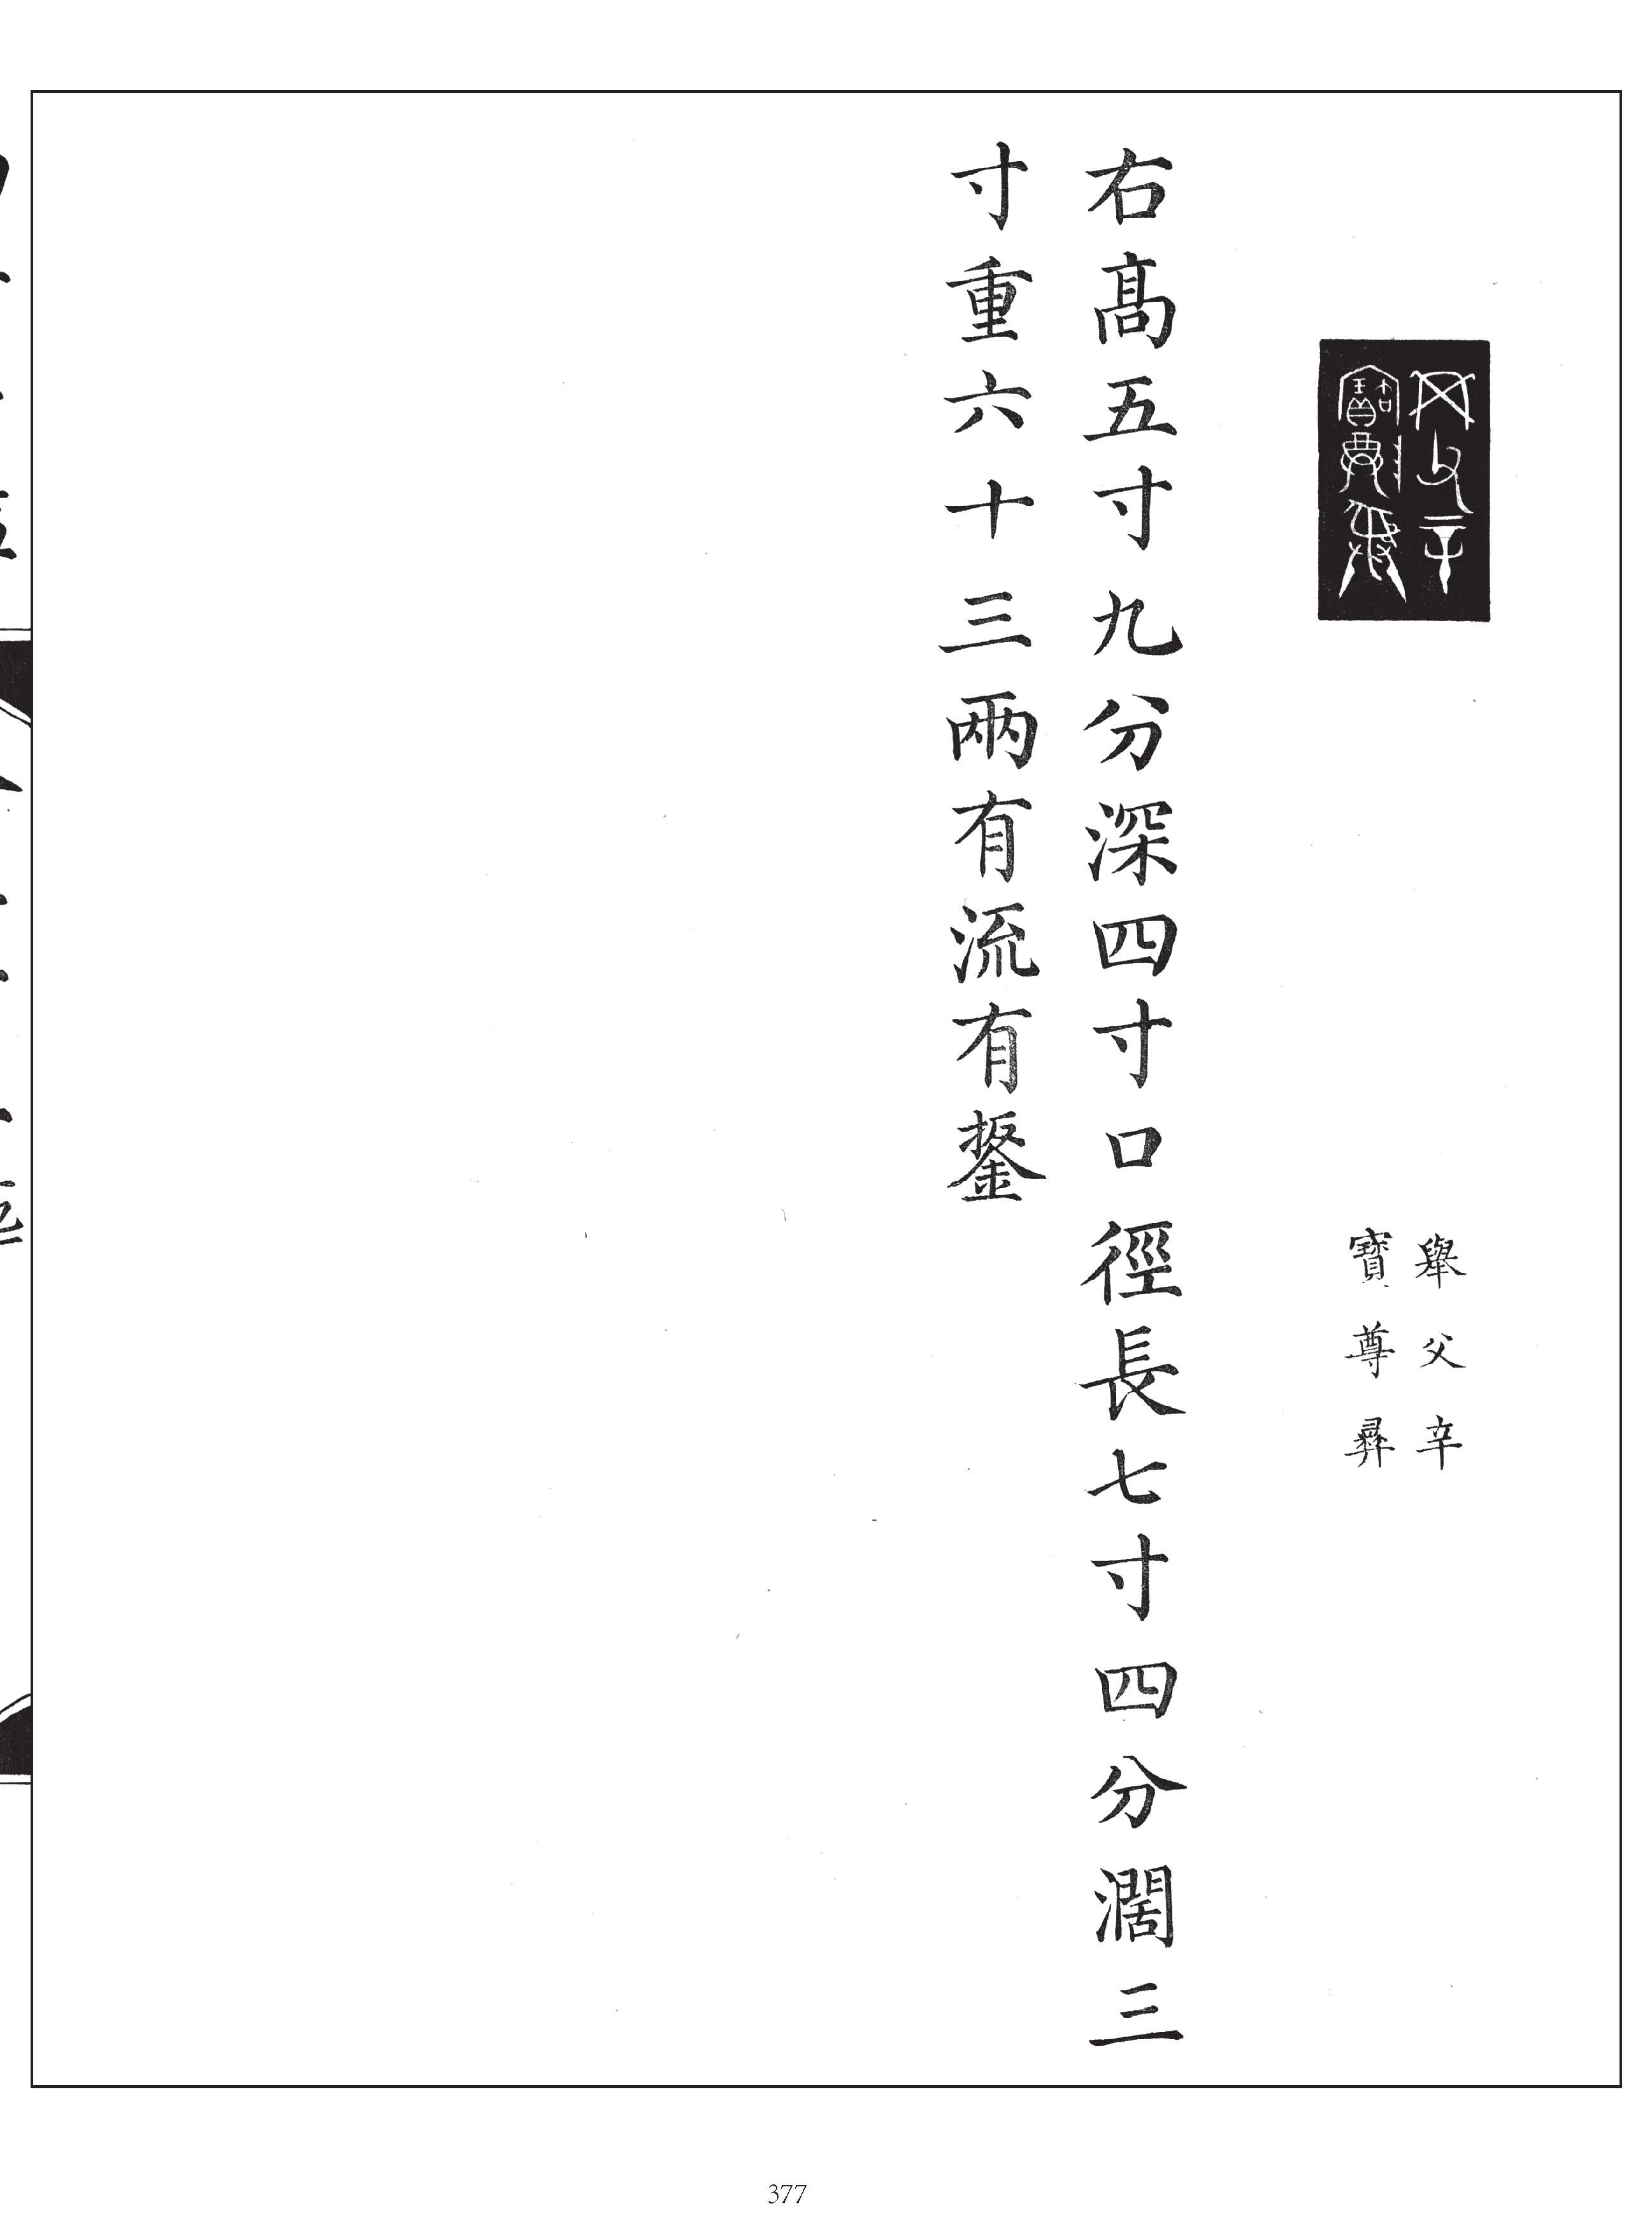 舉父辛
寶尊彝
右高五寸九分深四寸口徑長七寸四分濶三
寸重六十三兩有流有鋬
377